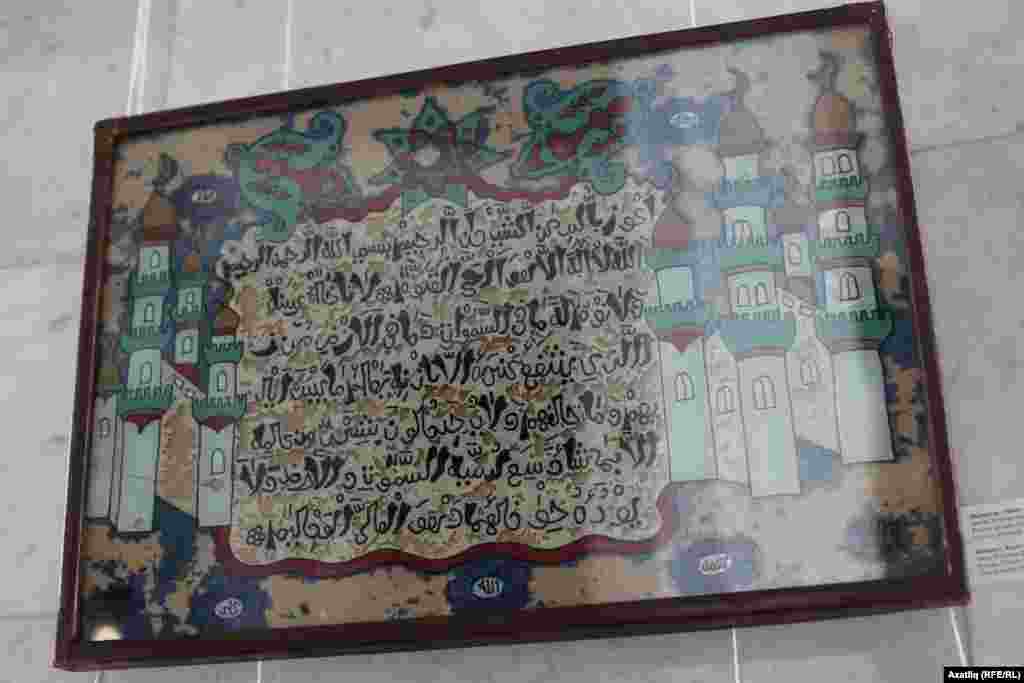 اعوذ بالله من الشيطان الرجيم بسم الله الرحمن الرحيم
الله لا اله الا هو الحي القيوم لا تاخذه سنة
ولا نوم له ما في السموات وما في الارض من ذا
الذي يشفع عنده الا باذنه يعلم ما بين ايد
يهم وما خلفهم ولا يحيطون بشيء من علمه
الا بما شاء وسع كرسيه السموات والارض ولا
يوده حفظهما وهو العلي العظيم
الله
الله
Azatliq (RFE/RL)